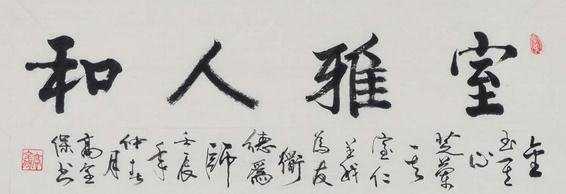 室雅人和
金
玉其
心
芝蘭
其
室仁
義
為友
衟
德為
師
壬辰
年
仲春
月
高金
保书